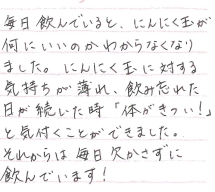 毎日飲んでいると、にんにく玉が
何にいいのかわからなくなり
ました。にんにく玉に対する
気持ちが薄れ、飲み忘れた
日が続いた時「体がきつい!」
と気付くことができました。
それからは毎日欠かさずに
飲んでいます!